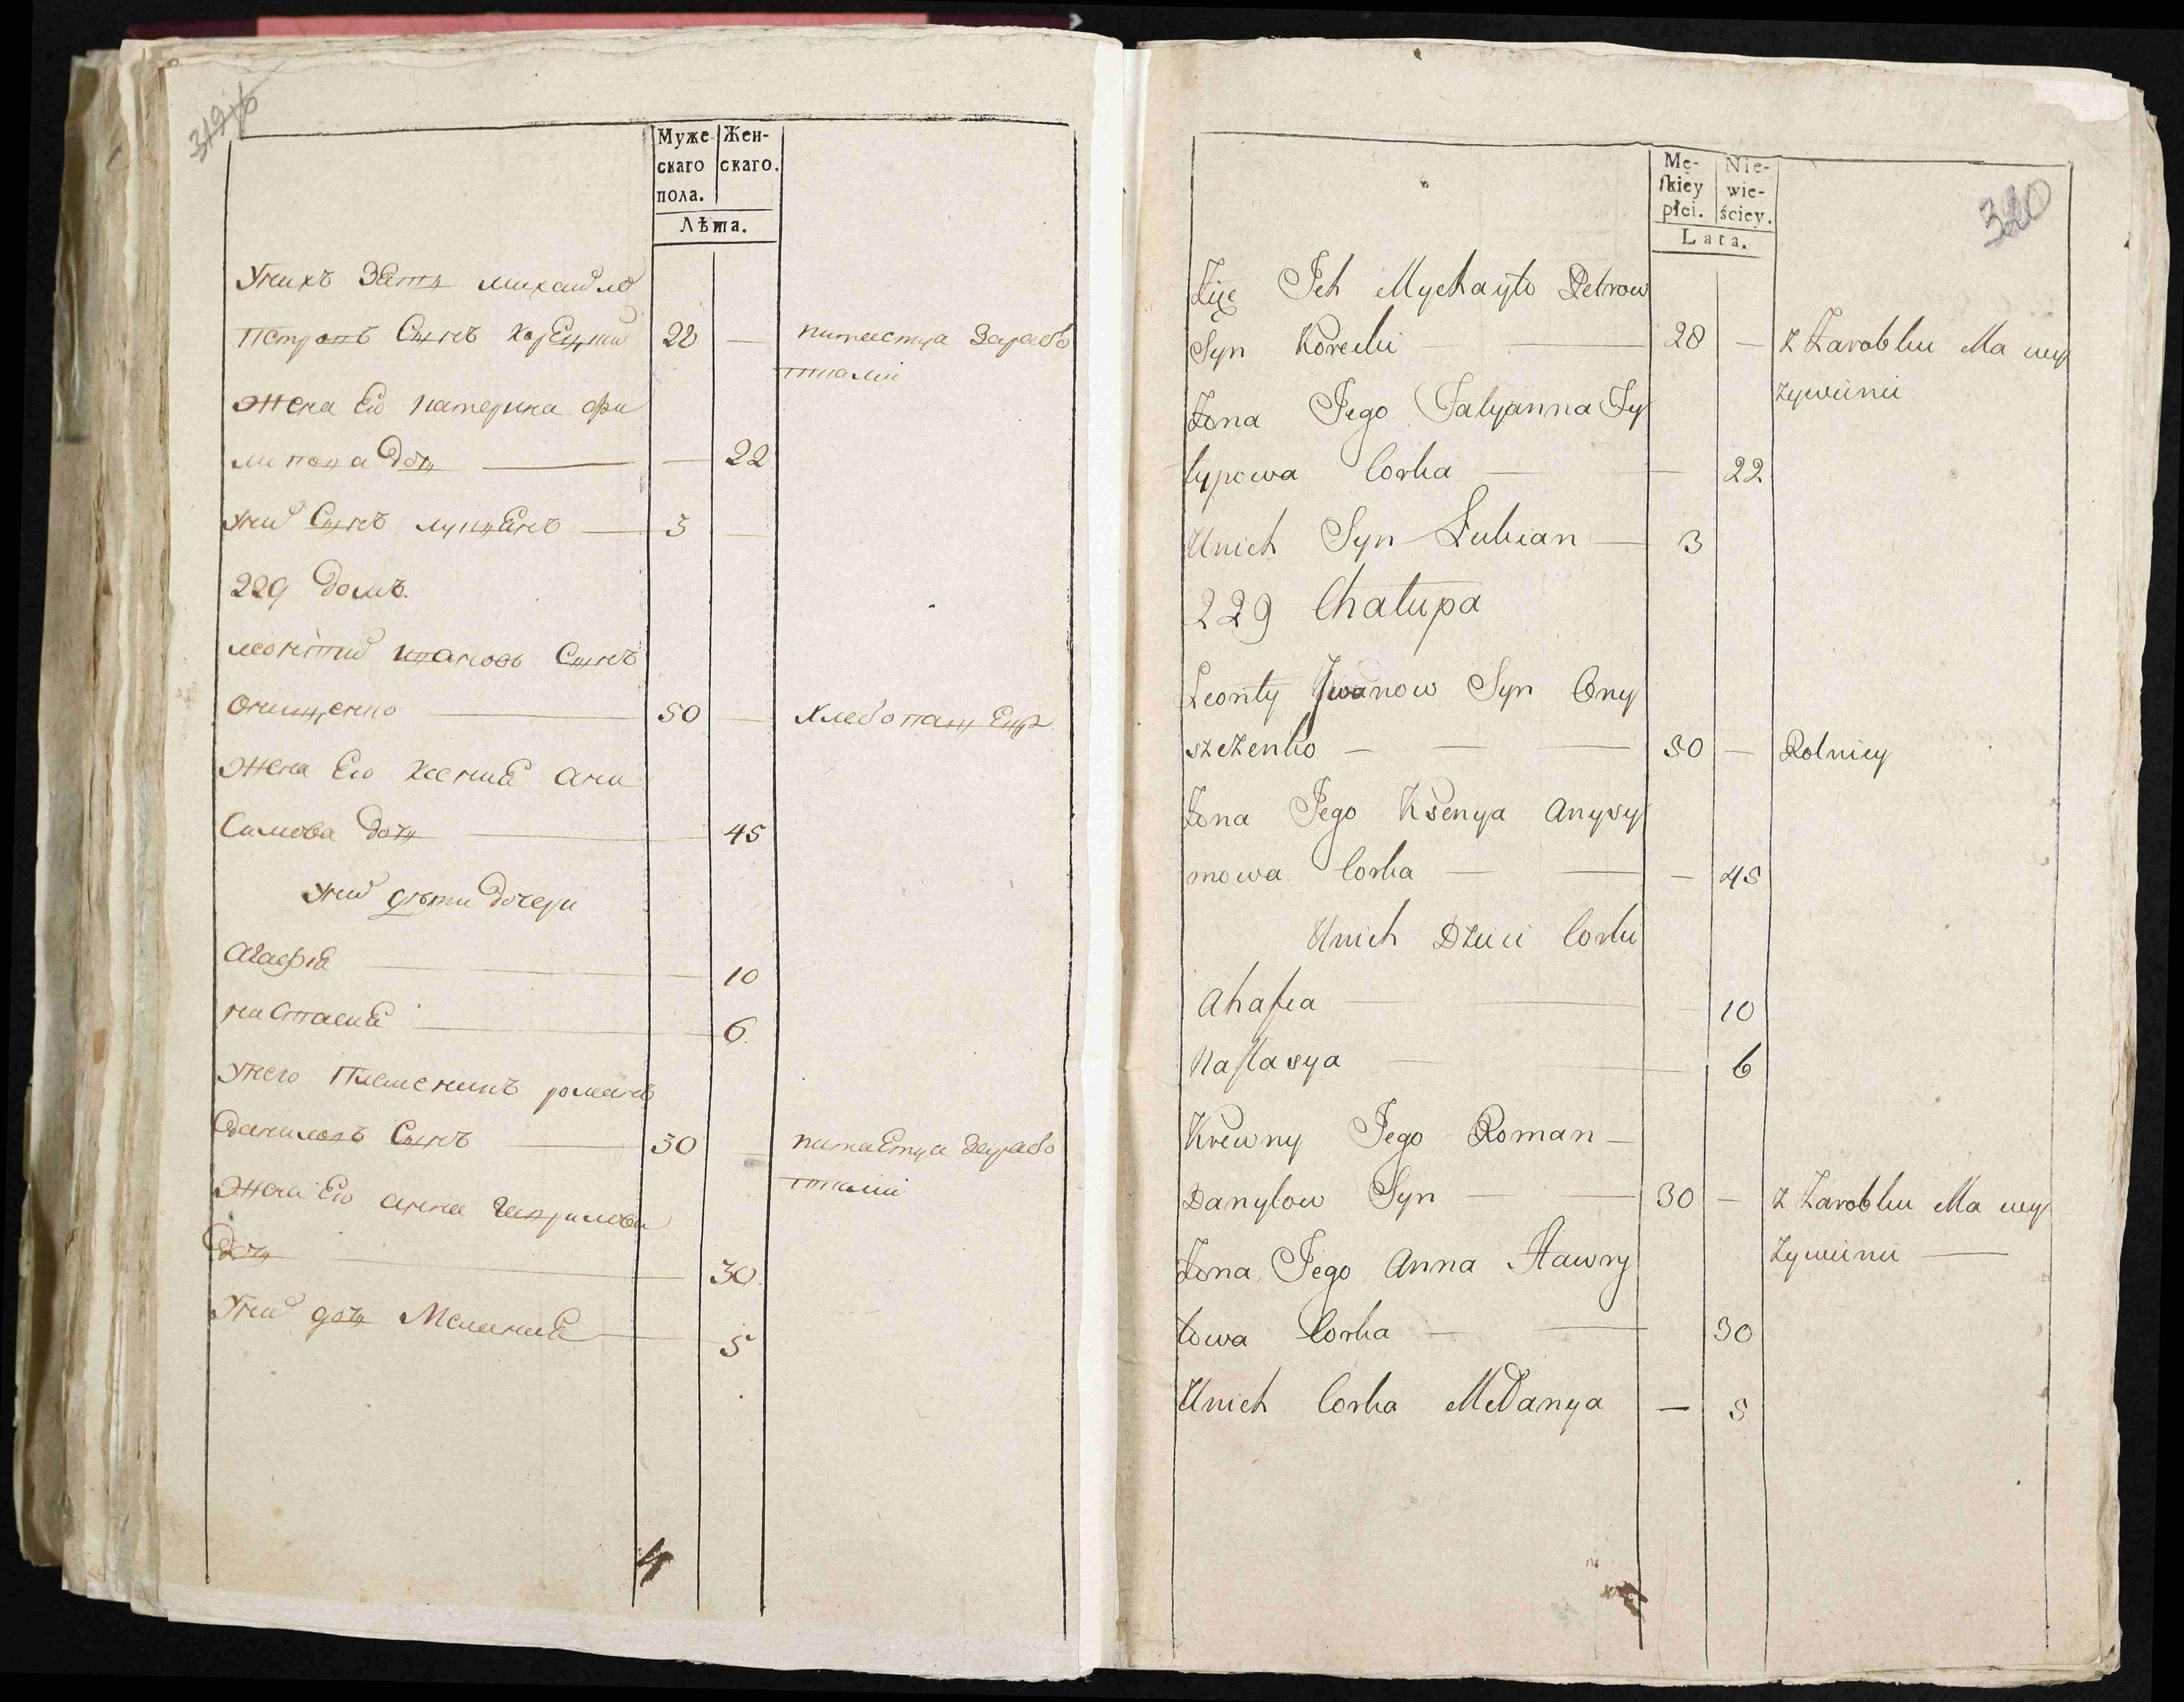 Муже Жен-
скаго скаго.
пола.
Лѣта.
Унихъ Зать михайло
Петровъ Сынъ Корецкий 28 — питаетца Зарабо
тками
Жена Его Катерина фи
липова дочь — — 22
уних Сынъ лукиянъ — 3 —
229 домъ.
леонтий ивановъ Сынъ
Онищенко — 50 — Хлебопашецъ
Жена Его Ксения Ани
Симова дочь — 45
уних дѣти дочери
Агафия — 10
настасия — 6.
унего Племеникъ романъ
даниловъ Сынъ — 30 — питаетца Зарабо
тками
Жена Его анна Гаврилова
дочь — 30.
Уних дочь Мелания — 5
320
Mę- Nie-
ſkiey wie-
płci. ściey.
Lata.
Zięć Ich Mychayło Petrow
Syn Korecki — 28 — z Zarobku Ma wy
żywienie
Zona Jego Tatyanna Fy
lypowa Corka — — 22
Unich Syn Łukian — 3
229 Chałupa
Leonty Jwanow Syn Ony
szczenko — — — 50 — Rolnicy
Zona Jego Ksenya Anysy
mowa Corka — — — 45
Unich Dzieci Corki
Ahafia — — — 10
Naſtasya — — 6
Krewny Jego Roman —
Danyłow Syn — — 30 — z Zarobku Ma wy
Zywienie —
Zona Jego Anna Hawry
łowa Corka — — 30
Unich Corka Mełanya — 5